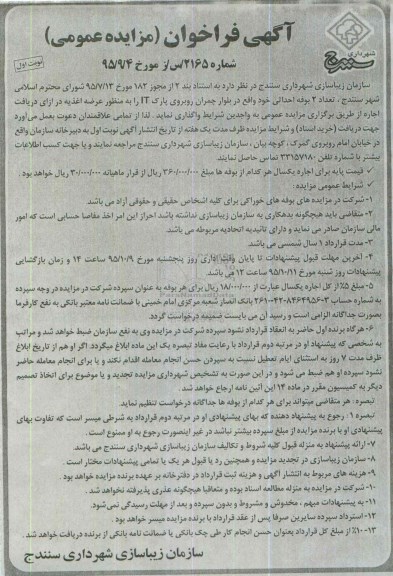 شهرداری
سنندج
آگهی فراخوان (مزایده عمومی)
شماره ۲۱۶۵/س/ز مورخ ۹۵/۹/۴
نوبت اول
سازمان زیباسازی شهرداری سنندج در نظر دارد به استناد بند ۲ از مجوز ۱۸۲ مورخ ۹۵/۷/۱۳ شورای محترم اسلامی
شهر سنندج ، تعداد ۲ بوفه احداثی خود واقع در بلوار چمران روبروی پارک IT را به منظور عرضه اغذیه در ازای دریافت
اجاره از طریق برگزاری مزایده عمومی به واجدین شرایط واگذاری نماید . لذا از تمامی علاقمندان دعوت بعمل می‌آورد
جهت دریافت (خرید اسناد) و شرایط مزایده ظرف مدت یک هفته از تاریخ انتشار آگهی نوبت اول به دبیرخانه سازمان واقع
در خیابان امام روبروی گمرک ، کوچه بیان ، سازمان زیباسازی شهرداری سنندج مراجعه نمایند و یا جهت کسب اطلاعات
بیشتر با شماره تلفن ۳۳۱۵۷۱۸۰ تماس حاصل نمایند.
✓ قیمت پایه برای اجاره یکسال هر کدام از بوفه ها مبلغ ۳۶۰/۰۰۰/۰۰۰ ریال از قرار ماهیانه ۳۰/۰۰۰/۰۰۰ ریال خواهد بود .
✓ شرایط عمومی مزایده :
۱- شرکت در مزایده های بوفه های خوراکی برای کلیه اشخاص حقیقی و حقوقی آزاد می باشد
۲- متقاضی باید هیچگونه بدهکاری به سازمان زیباسازی نداشته باشد احراز این امر اخذ مفاصا حسابی است که امور
مالی سازمان صادر می نماید و دارای تائیدیه اتحادیه مربوطه می باشد.
۳- مدت قرارداد ۱ سال شمسی می باشد.
۴- آخرین مهلت قبول پیشنهادات تا پایان وقت اداری روز پنجشنبه مورخ ۹۵/۱۰/۹ ساعت ۱۴ و زمان بازگشایی
پیشنهادات روز شنبه مورخ ۹۵/۱۰/۱۱ ساعت ۱۲ می باشد.
۵- مبلغ ۵٪ از کل اجاره یکسال عبارت از ۱۸/۰۰۰/۰۰۰ ریال برای هر بوفه به عنوان سپرده شرکت در مزایده در وجه سپرده
به شماره حساب ۳-۲۶۱۰۴۲۰۸۴۶۴۹۵۶ بانک انصار شعبه مرکزی امام خمینی یا ضمانت نامه معتبر بانکی به نفع کارفرما
بصورت جداگانه الزامی است و رسید آن می بایست ضمیمه درخواست گردد.
۶- هرگاه برنده اول حاضر به انعقاد قرارداد نشود سپرده شرکت در مزایده وی به نفع سازمان ضبط خواهد شد و مراتب
به شخصی که پیشنهاد او در مرتبه دوم قرارداد با رعایت مفاد تبصره یک این ماده ابلاغ میگردد. اگر او هم از تاریخ ابلاغ
ظرف مدت ۷ روز به استثنای ایام تعطیل نسبت به سپردن حسن انجام معامله اقدام نکند و یا برای انجام معامله حاضر
نشود سپرده او هم ضبط می شود و در این صورت به تشخیص شهرداری مزایده تجدید و یا موضوع برای اتخاذ تصمیم
دیگر به کمیسیون مقرر در ماده ۱۴ این آئین نامه ارجاع خواهد شد.
تبصره : هر متقاضی میتواند برای هر کدام از بوفه ها جداگانه درخواست تنظیم نماید.
تبصره ۱ : رجوع به پیشنهاد دهنده که بهای پیشنهادی او در مرتبه دوم قرارداد به شرطی میسر است که تفاوت بهای
پیشنهادی او با برنده مزایده از مبلغ سپرده بیشتر نباشد در غیر اینصورت رجوع به او ممنوع است .
۷- ارائه پیشنهاد به منزله قبول کلیه شروط و تکالیف سازمان زیباسازی شهرداری سنندج می باشد.
۸- سازمان زیباسازی در تجدید مزایده و همچنین رد یا قبول هر یک یا تمامی پیشنهادات مختار است .
۹- هزینه های مربوط به انتشار آگهی و هزینه ثبت قرارداد در دفترخانه بر عهده برنده مزایده خواهد بود .
۱۰- شرکت در مزایده به منزله مطالعه اسناد بوده و متعاقبا هیچگونه عذری پذیرفته نخواهد شد .
۱۱- به پیشنهادات مبهم ، مخدوش و مشروط و بدون سپرده و بعد از مهلت رسیدگی نمی شود.
۱۲- استرداد سپرده سایرین صرفا پس از عقد قرارداد با برنده مزایده میسر خواهد بود .
۱۳- ۱۰٪ از مبلغ کل قرارداد بعنوان حسن انجام کار طی چک بانکی یا ضمانت نامه بانکی از برنده دریافت خواهد شد .
سازمان زیباسازی شهرداری سنندج